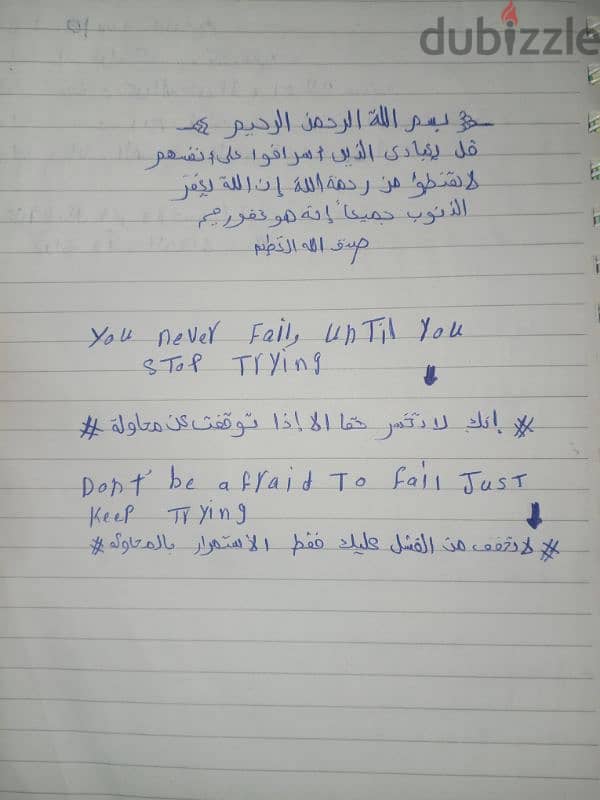 dubizzle
بسم الله الرحمن الرحيم
قل يعبادى الذين أسرافوا على أنفسهم
لا تقنطوا من رحمة الله إن الله يغفر
الذنوب جميعاً إنه هو غفور رحيم
صدق الله العظيم
You never Fail, UnTil You
STOP Trying
# إنك لا تخسر حقا الا إذا توقفت عن محاولة #
Dont' be afraid To Fail JUST
Keep Trying
# لا تخف من الفشل عليك فقط الأستمرار بالمحاولة #